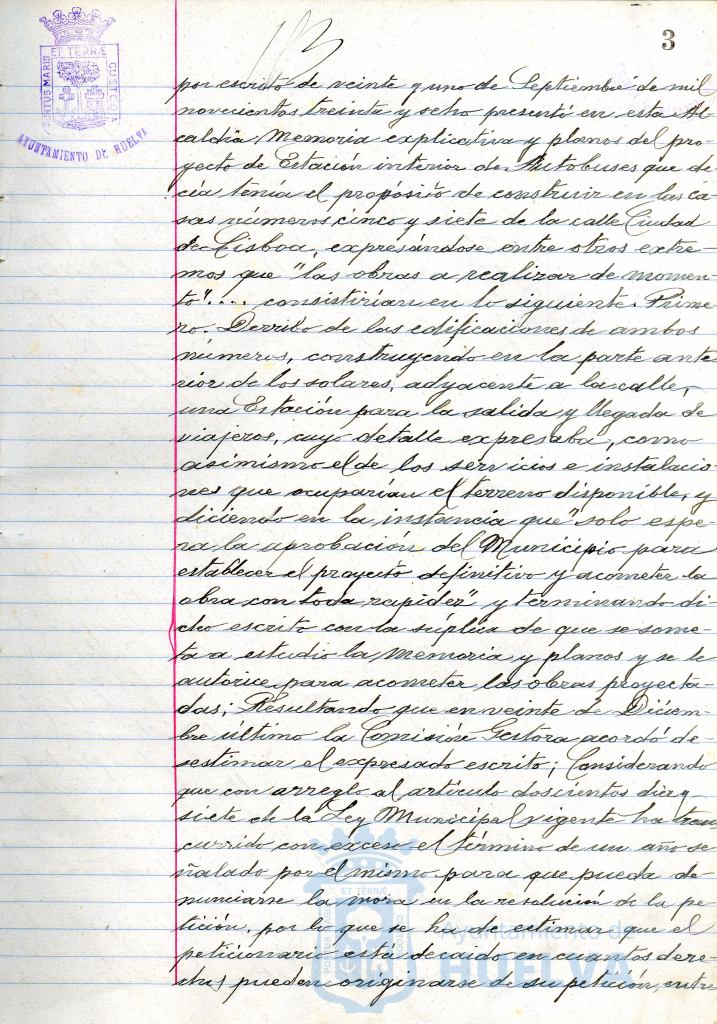 3
PORTUS MARIS ET TERRÆ CUSTODIA
AYUNTAMIENTO DE HUELVA
por escrito de veinte y uno de Septiembre de mil
novecientos treinta y ocho presentó en esta Al
caldía Memoria explicativa y planos del pro-
yecto de Estación interior de Autobuses que de-
cía tenía el propósito de construir en las ca
sas números cinco y siete de la calle Ciudad
de Lisboa, expresándose entre otros extre-
mos que "las obras a realizar de momen-
to".... consistirían en lo siguiente. Prime-
ro. Derribo de las edificaciones de ambos
números, construyendo en la parte ante
rior de los solares, adyacente a la calle,
una Estación para la salida y llegada de
viajeros, cuyo detalle expresaba, como
asimismo el de los servicios e instalacio-
nes que ocuparían el terreno disponible, y
diciendo en la instancia que "solo espe-
ra la aprobación del Municipio para
establecer el proyecto definitivo y acometer la
obra con toda rapidez" y terminando di-
cho escrito con la súplica de que se some-
ta a estudio la Memoria y planos y se le
autorice para acometer las obras proyecta-
das; Resultando que en veinte de Diciem-
bre último la Comisión Gestora acordó de-
sestimar el expresado escrito; Considerando
que con arreglo al artículo doscientos diez y
siete de la Ley Municipal vigente ha trans
currido con exceso el término de un año se
ñalado por el mismo para que pueda de-
nunciarse la mora en la resolución de la pe-
tición, por lo que se ha de estimar que el
peticionario está decaido en cuantos dere-
chos pueden originarse de su petición, entre
ET TERRÆ
Ayuntamiento de
HUELVA